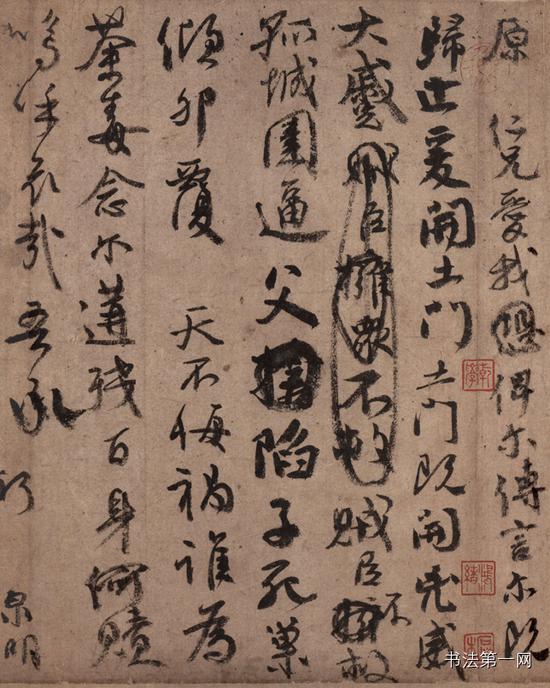 原 仁兄愛我俾尔傳言尔既
歸止爰開土門土門既開兇威
大蹙賊臣擁眾不救賊臣不救
孤城圍逼父陷子死巢
傾卵覆 天不悔禍誰為
荼毒念尔遘殘百身何贖
嗚乎哀哉吾承
泉明
书法第一网